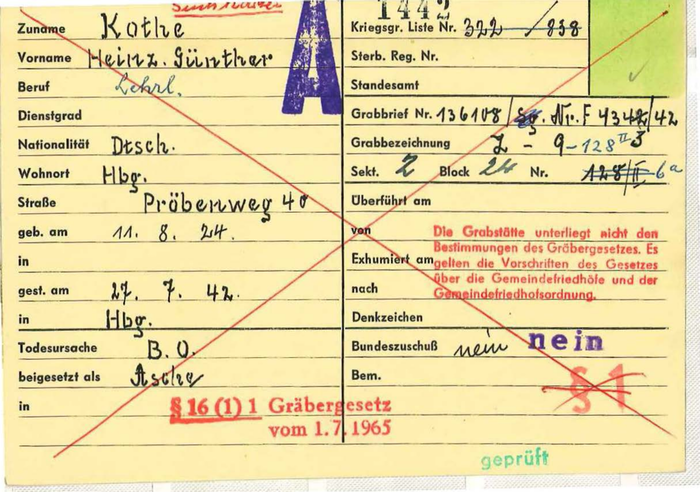 1442
A
Zuname Kothe
Vorname Heinz. Günther
Beruf Lehrl.
Dienstgrad
Nationalität Dtsch.
Wohnort Hbg.
Straße Pröbenweg 40
geb. am 11. 8. 24.
in
gest. am 27. 7. 42.
in Hbg.
Todesursache B. O.
beigesetzt als Asche
in
§ 16 (1) 1 Gräbergesetz
vom 1.7.1965
Kriegsgr. Liste Nr. 322 / 838
Sterb. Reg. Nr.
Standesamt
Grabbrief Nr. 136108 / Nr. F 4342/42
Grabbezeichnung Z - 9-128 II 3
Sekt. Z Block 24 Nr. 128/II 6a
Überführt am
von
Die Grabstätte unterliegt nicht den
Bestimmungen des Gräbergesetzes. Es
gelten die Vorschriften des Gesetzes
über die Gemeindefriedhöfe und der
Gemeindefriedhofsordnung.
Exhumiert am
nach
Denkzeichen
Bundeszuschuß nein nein
Bem.
§ 1
geprüft